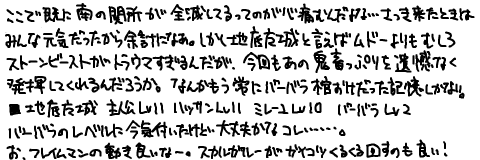 ここで既に南の関所が全滅してるってのが心痛むんだよな…さっき来たときは
みんな元気だったから余計になぁ。しかし地底魔城と言えばムドーよりもむしろ
ストーンビーストがトラウマすぎるんだが、今回もあの鬼畜っぷりを遺憾なく
発揮してくれるんだろうか。なんかもう常にバーバラ棺おけだった記憶しかない。
■地底魔城 主人公Lv11 ハッサンLv11 ミレーユLv10 バーバラLv2
バーバラのレベルに今気付いたけど…大丈夫かなコレ……。
お、フレイムマンの動き良いなー。スカルガルーがガイコツくるくる回すのも良い！